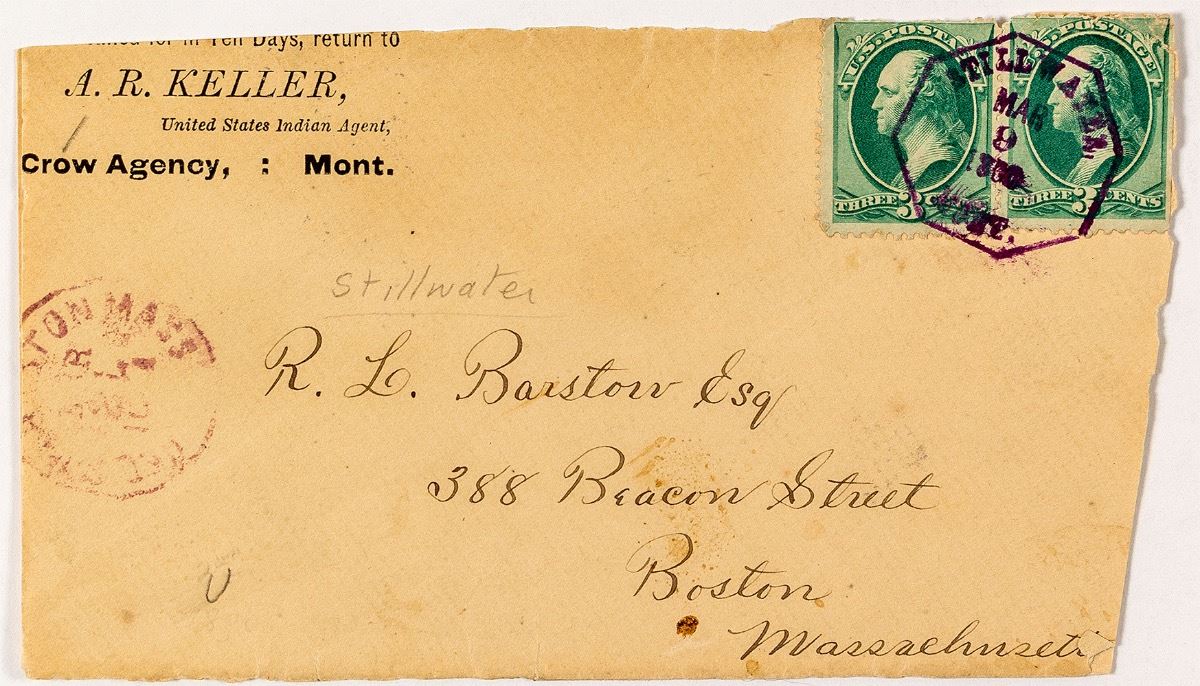 for in Ten Days, return to
A. R. KELLER,
United States Indian Agent,
Crow Agency, : Mont.
U.S. POSTAGE
THREE 3
U.S. POSTAGE
THREE 3 CENTS
STILLWATER,
MAR
9
1880
MONT.
Stillwater
STON MASS
R. L. Barstow Esq
388 Beacon Street
Boston
Massachusetts